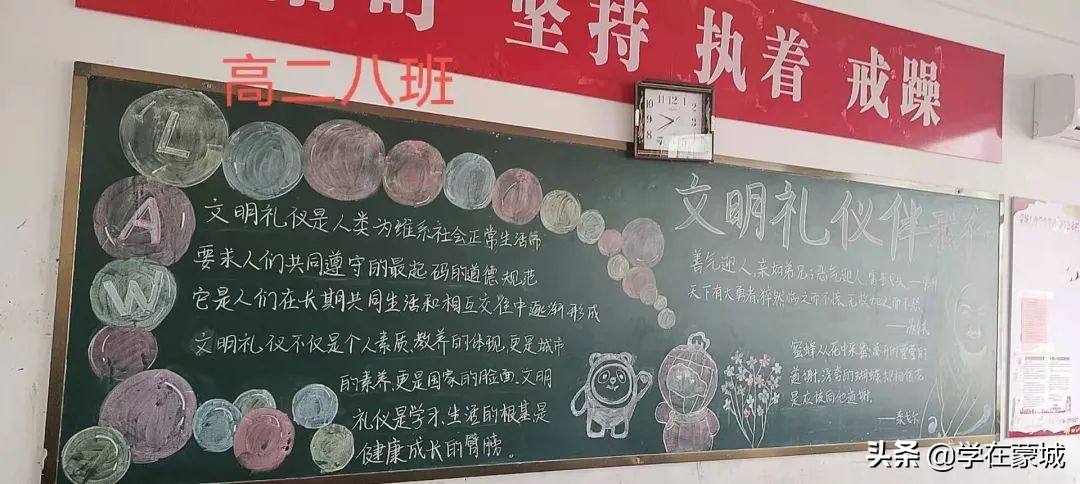 坚持 执着 戒躁
高二八班
L
A
W
文明礼仪是人类为维系社会正常生活而
要求人们共同遵守的最起码的道德规范
它是人们在长期共同生活和相互交往中逐渐形成
文明礼仪不仅是个人素质、教养的体现,更是城市
的素养,更是国家的脸面,文明
礼仪是学习、生活的根基,是
健康成长的臂膀。
文明礼仪伴我
善气迎人,亲如弟兄;恶气迎人,害于戈
天下有大勇者,猝然临之而不惊,无故加之而不怒
蜜蜂从花中采蜜,离开时
道谢,浮夸的蝴蝶却相信花
是应该向他道谢
——泰戈尔
12
头条 @学在蒙城